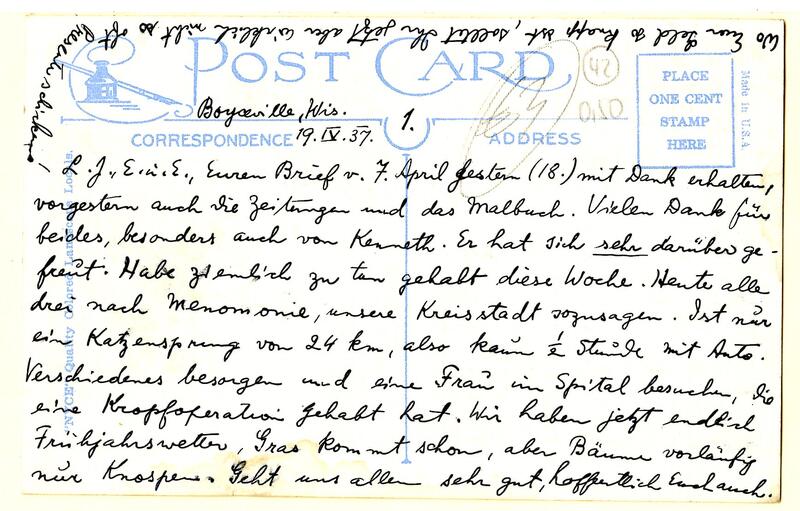 Wo Euer Geld so knapp ist, solltet Ihr jetzt aber wirklich nicht so oft
Presents schicken!
POST CARD
42
0,10
PLACE
ONE CENT
STAMP
HERE
Made in U.S.A
Boyceville, Wis.
19.IV.37.
1.
CORRESPONDENCE
ADDRESS
"NYCE" Quality Colored Landscape Locals.
L.J., E.u.E., Euren Brief v. 7. April gestern (18.) mit Dank erhalten,
vorgestern auch die Zeitungen und das Malbuch. Vielen Dank für
beides, besonders auch von Kenneth. Er hat sich sehr darüber ge-
freut. Habe ziemlich zu tun gehabt diese Woche. Heute alle
drei nach Menomonie, unsere Kreisstadt sozusagen. Ist nur
ein Katzensprung von 24 km, also kaum ½ Stunde mit Auto.
Verschiedenes besorgen und eine Frau im Spital besuchen, die
eine Kropfoperation gehabt hat. Wir haben jetzt endlich
Frühjahrswetter, Gras kommt schon, aber Bäume vorläufig
nur Knospen. Geht uns allen sehr gut, hoffentlich Euch auch.